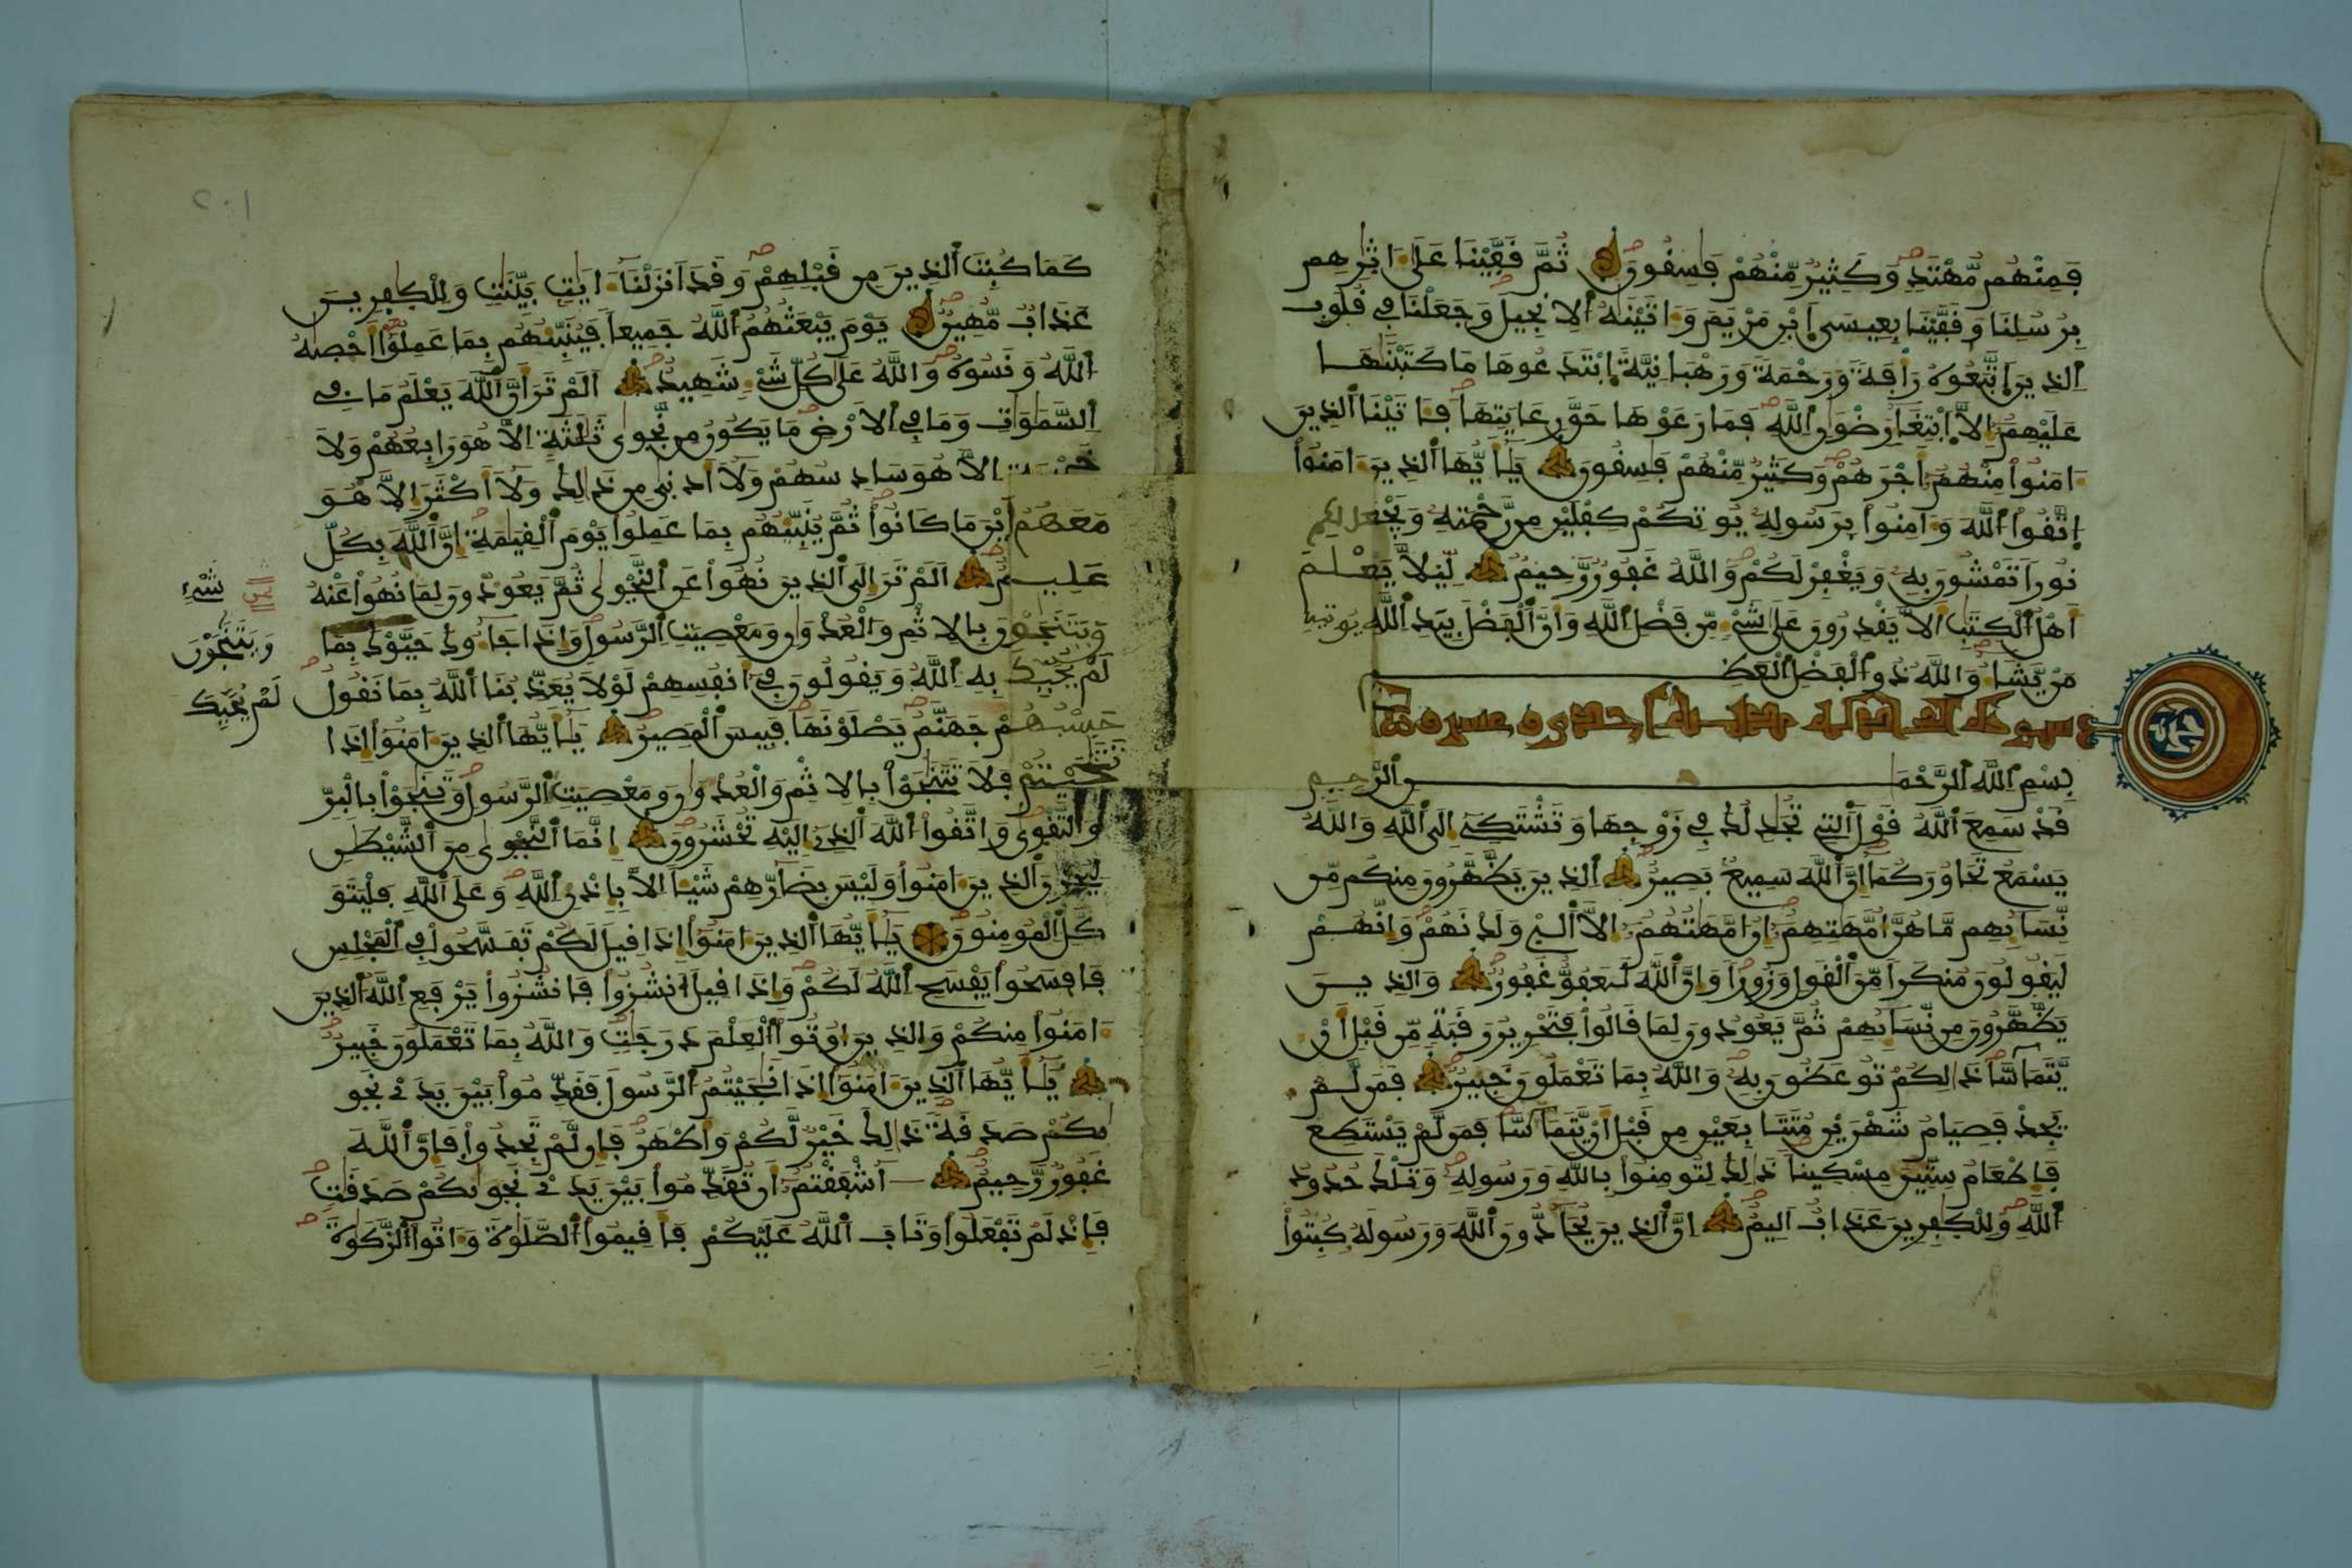 فَمِنْهُم مُّهْتَدٍ وَكَثِيرٌ مِّنْهُمْ فَٰسِقُونَ ثُمَّ قَفَّيْنَا عَلَىٰ ءَاثٰرِهِم
بِرُسُلِنَا وَقَفَّيْنَا بِعِيسَى اَبْنِ مَرْيَمَ وَءَاتَيْنَٰهُ اُ۬لِانجِيلَ وَجَعَلْنَا فِي قُلُوبِ
اِ۬لذِينَ اَ۪تَّبَعُوهُ رَأْفَةً وَرَحْمَةً وَرَهْبَانِيَّةً اِ۪بْتَدَعُوهَا مَا كَتَبْنَٰهَا
عَلَيْهِمُ إِلاَّ اَ۪بْتِغَآءَ رِضْوَٰنِ اِ۬للَّهِ فَمَا رَعَوْهَا حَقَّ رِعَايَتِهَا فَـَٔاتَيْنَا اَ۬لذِينَ
ءَامَنُواْ مِنْهُمُ أَجْرَهُمْ وَكَثِيرٌ مِّنْهُمْ فَٰسِقُونَ يَٰٓأَيُّهَا اَ۬لذِينَ ءَامَنُواْ
اُ۪تَّقُواْ اُ۬للَّهَ وَءَامِنُواْ بِرَسُولِهِ يُوتِكُمْ كِفْلَيْنِ مِن رَّحْمَتِهِ وَيَجْعَل لَّكُمْ
نُوراً تَمْشُونَ بِهِ وَيَغْفِرْ لَكُمْ وَاللَّهُ غَفُورٌ رَّحِيمٌ لِّيَلاَّ يَعْلَمَ
أَهْلُ اُ۬لْكِتَٰبِ أَلاَّ يَقْدِرُونَ عَلَىٰ شَےْءٍ مِّن فَضْلِ اِ۬للَّهِ وَأَنَّ اَ۬لْفَضْلَ بِيَدِ اِ۬للَّهِ يُوتِيهِ
مَنْ يَّشَآءُ وَاللَّهُ ذُو اُ۬لْفَضْلِ اِ۬لْعَظِيمِ
بِسْمِ اِ۬للَّهِ اِ۬لرَّحْمَٰنِ اِ۬لرَّحِيمِ
قَدْ سَمِعَ اَ۬للَّهُ قَوْلَ اَ۬لتِي تُجَٰدِلُكَ فِي زَوْجِهَا وَتَشْتَكِي إِلَى اَ۬للَّهِ وَاللَّهُ
يَسْمَعُ تَحَاوُرَكُمَآ إِنَّ اَ۬للَّهَ سَمِيعٌ بَصِيرٌ اِ۬لذِينَ يَظَّهَّرُونَ مِنكُم مِّن
نِّسَآئِهِم مَّا هُنَّ أُمَّهَٰتِهِمُ إِنُ امَّهَٰتُهُمُ إِلاَّ اَ۬لَّٰٓـِٕے وَلَدْنَهُمْ وَإِنَّهُمْ
لَيَقُولُونَ مُنكَراً مِّنَ اَ۬لْقَوْلِ وَزُوراً وَإِنَّ اَ۬للَّهَ لَعَفُوٌّ غَفُورٌ وَالذِينَ
يَظَّهَّرُونَ مِن نِّسَآئِهِمْ ثُمَّ يَعُودُونَ لِمَا قَالُواْ فَتَحْرِيرُ رَقَبَةٍ مِّن قَبْلِ أَنْ
يَّتَمَآسَّا ذَٰلِكُمْ تُوعَظُونَ بِهِ وَاللَّهُ بِمَا تَعْمَلُونَ خَبِيرٌ فَمَن لَّمْ
يَجِدْ فَصِيَامُ شَهْرَيْنِ مُتَتَابِعَيْنِ مِن قَبْلِ أَنْ يَّتَمَآسَّا فَمَن لَّمْ يَسْتَطِعْ
فَإِطْعَامُ سِتِّينَ مِسْكِيناً ذَٰلِكَ لِتُومِنُواْ بِاللَّهِ وَرَسُولِهِ وَتِلْكَ حُدُودُ
اُ۬للَّهِ وَلِلْكٰفِرِينَ عَذَابٌ اَلِيمٌ إِنَّ اَ۬لذِينَ يُحَآدُّونَ اَ۬للَّهَ وَرَسُولَهُ كُبِتُواْ
٢٠١
كَمَا كُبِتَ اَ۬لذِينَ مِن قَبْلِهِمْ وَقَدَ اَنزَلْنَآ ءَايَٰتٍ بَيِّنَٰتٍ وَلِلْكٰفِرِينَ
عَذَابٌ مُّهِينٌ يَوْمَ يَبْعَثُهُمُ اُ۬للَّهُ جَمِيعاً فَيُنَبِّئُهُم بِمَا عَمِلُوٓاْ أَحْصَيٰهُ
اُ۬للَّهُ وَنَسُوهُ وَاللَّهُ عَلَىٰ كُلِّ شَےْءٍ شَهِيدٌ اَلَمْ تَرَ أَنَّ اَ۬للَّهَ يَعْلَمُ مَا فِي
اِ۬لسَّمَٰوَٰتِ وَمَا فِي اِ۬لَارْضِ مَا يَكُونُ مِن نَّجْوَىٰ ثَلَٰثَةٍ إِلاَّ هُوَ رَابِعُهُمْ وَلاَ
خَمْسَةٍ إِلاَّ هُوَ سَادِسُهُمْ وَلَآ أَدْنَىٰ مِن ذَٰلِكَ وَلَآ أَكْثَرَ إِلاَّ هُوَ
مَعَهُمُ أَيْنَ مَا كَانُواْ ثُمَّ يُنَبِّئُهُم بِمَا عَمِلُواْ يَوْمَ اَ۬لْقِيَٰمَةِ إِنَّ اَ۬للَّهَ بِكُلِّ
شَےْءٍ
عَلِيمٌ اَلَمْ تَرَ إِلَى اَ۬لذِينَ نُهُواْ عَنِ اِ۬لنَّجْوَىٰ ثُمَّ يَعُودُونَ لِمَا نُهُواْ عَنْهُ
وَيَتَنَٰجَوْنَ بِالِاثْمِ وَالْعُدْوَٰنِ وَمَعْصِيَتِ اِ۬لرَّسُولِ وَإِذَا جَآءُوكَ حَيَّوْكَ بِمَا
وَيَتَنَٰجَوْنَ
لَمْ يُحَيِّكَ بِهِ اِ۬للَّهُ وَيَقُولُونَ فِي أَنفُسِهِمْ لَوْلاَ يُعَذِّبُنَا اَ۬للَّهُ بِمَا نَقُولُ
لَمْ يُحَيِّكَ
حَسْبُهُمْ جَهَنَّمُ يَصْلَوْنَهَا فَبِيسَ اَ۬لْمَصِيرُ يَٰٓأَيُّهَا اَ۬لذِينَ ءَامَنُوٓاْ إِذَا
تَنَٰجَيْتُمْ فَلاَ تَتَنَٰجَوْاْ بِالِاثْمِ وَالْعُدْوَٰنِ وَمَعْصِيَتِ اِ۬لرَّسُولِ وَتَنَٰجَوْاْ بِالْبِرِّ
وَالتَّقْوَىٰ وَاتَّقُواْ اُ۬للَّهَ اَ۬لذِي إِلَيْهِ تُحْشَرُونَ إِنَّمَا اَ۬لنَّجْوَىٰ مِنَ اَ۬لشَّيْطَٰنِ
لِيُحْزِنَ اَ۬لذِينَ ءَامَنُواْ وَلَيْسَ بِضَآرِّهِمْ شَيْـٔاً اِلاَّ بِإِذْنِ اِ۬للَّهِ وَعَلَى اَ۬للَّهِ فَلْيَتَوَ
كَّلِ اِ۬لْمُومِنُونَ يَٰٓأَيُّهَا اَ۬لذِينَ ءَامَنُوٓاْ إِذَا قِيلَ لَكُمْ تَفَسَّحُواْ فِي اِ۬لْمَجْلِسِ
فَافْسَحُواْ يَفْسَحِ اِ۬للَّهُ لَكُمْ وَإِذَا قِيلَ اَ۟نشُزُواْ فَانشُزُواْ يَرْفَعِ اِ۬للَّهُ اُ۬لذِينَ
ءَامَنُواْ مِنكُمْ وَالذِينَ أُوتُواْ اُ۬لْعِلْمَ دَرَجَٰتٍ وَاللَّهُ بِمَا تَعْمَلُونَ خَبِيرٌ
يَٰٓأَيُّهَا اَ۬لذِينَ ءَامَنُوٓاْ إِذَا نَٰجَيْتُمُ اُ۬لرَّسُولَ فَقَدِّمُواْ بَيْنَ يَدَيْ نَجْوَ
ىٰكُمْ صَدَقَةً ذَٰلِكَ خَيْرٌ لَّكُمْ وَأَطْهَرُ فَإِن لَّمْ تَجِدُواْ فَإِنَّ اَ۬للَّهَ
غَفُورٌ رَّحِيمٌ ءَآشْفَقْتُمُ أَن تُقَدِّمُواْ بَيْنَ يَدَيْ نَجْوَىٰكُمْ صَدَقَٰتٍ
فَإِذْ لَمْ تَفْعَلُواْ وَتَابَ اَ۬للَّهُ عَلَيْكُمْ فَأَقِيمُواْ اُ۬لصَّلَوٰةَ وَءَاتُواْ اُ۬لزَّكَوٰةَ